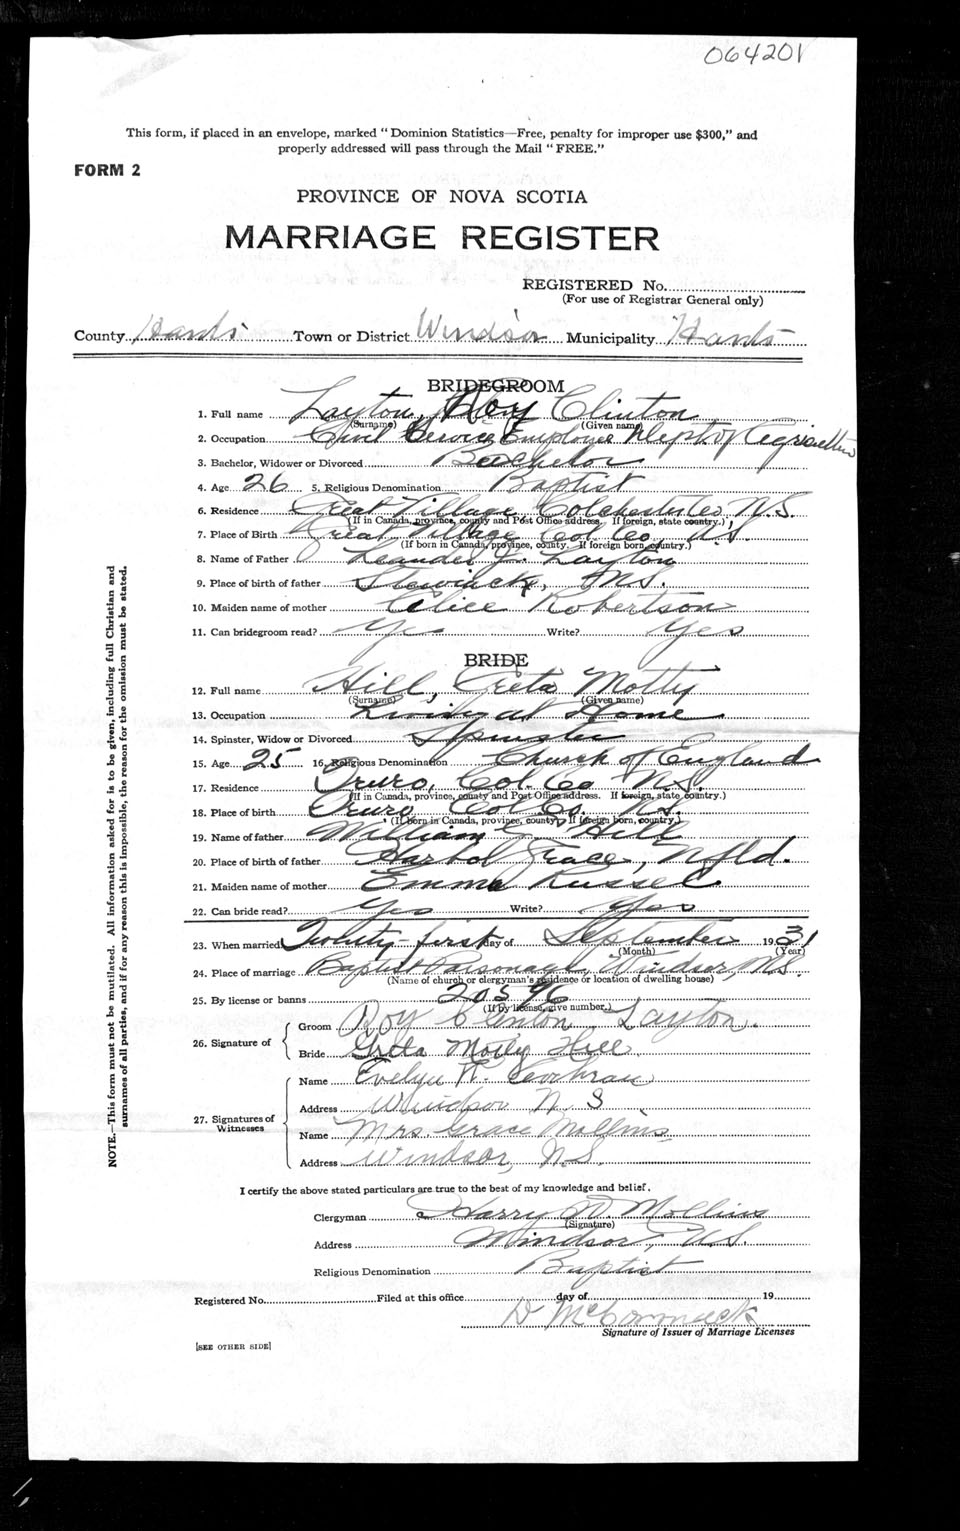 064201
This form, if placed in an envelope, marked "Dominion Statistics—Free, penalty for improper use $300," and
properly addressed will pass through the Mail "FREE."
FORM 2
PROVINCE OF NOVA SCOTIA
MARRIAGE REGISTER
REGISTERED No.
(For use of Registrar General only)
County Hants Town or District Windsor Municipality Hants
BRIDEGROOM
1. Full name Layton, Roy Clinton
(Surname) (Given name)
2. Occupation Civil Service Employee Dept of Agriculture
3. Bachelor, Widower or Divorced Bachelor
4. Age 26 5. Religious Denomination Baptist
6. Residence Great Village Colchester Co, N.S.
(If in Canada, province, county and Post Office address. If foreign, state country.)
7. Place of Birth Great Village Col. Co, N.S.
(If born in Canada, province, county. If foreign born, country.)
8. Name of Father Leander J. Layton
9. Place of birth of father Stewiacke, N.S.
10. Maiden name of mother Alice Robertson
11. Can bridegroom read? Yes Write? Yes
BRIDE
12. Full name Hill, Greta Motty
(Surname) (Given name)
13. Occupation Living at Home
14. Spinster, Widow or Divorced Spinster
15. Age 25 16. Religious Denomination Church of England
17. Residence Truro, Col. Co N.S.
(If in Canada, province, county and Post Office address. If foreign, state country.)
18. Place of birth Truro Col Co. N.S.
(If born in Canada, province, county. If foreign born, country.)
19. Name of father William G. Hill
20. Place of birth of father Harbor Grace, Nfld.
21. Maiden name of mother Emma Russel
22. Can bride read? Yes Write? Yes
23. When married Twenty-first day of September 1931
(Month) (Year)
24. Place of marriage Baptist Parsonage, Windsor, N.S.
(Name of church or clergyman's residence or location of dwelling house)
25. By license or banns 20596
(If by license, give number.)
26. Signature of
Groom Roy Clinton Layton.
Bride Greta Motty Hill
27. Signatures of
Witnesses
Name Evelyn W. Cochran
Address Windsor N.S
Name Mrs. Grace Mollins
Address Windsor, N.S.
I certify the above stated particulars are true to the best of my knowledge and belief.
Clergyman Harry D. Mollins
(Signature)
Address Windsor, N.S.
Religious Denomination Baptist
Registered No. Filed at this office day of 19
D McCormack
Signature of Issuer of Marriage Licenses
[SEE OTHER SIDE]
NOTE.—This form must not be mutilated. All information asked for is to be given, including full Christian and
surnames of all parties, and if for any reason this is impossible, the reason for the omission must be stated.